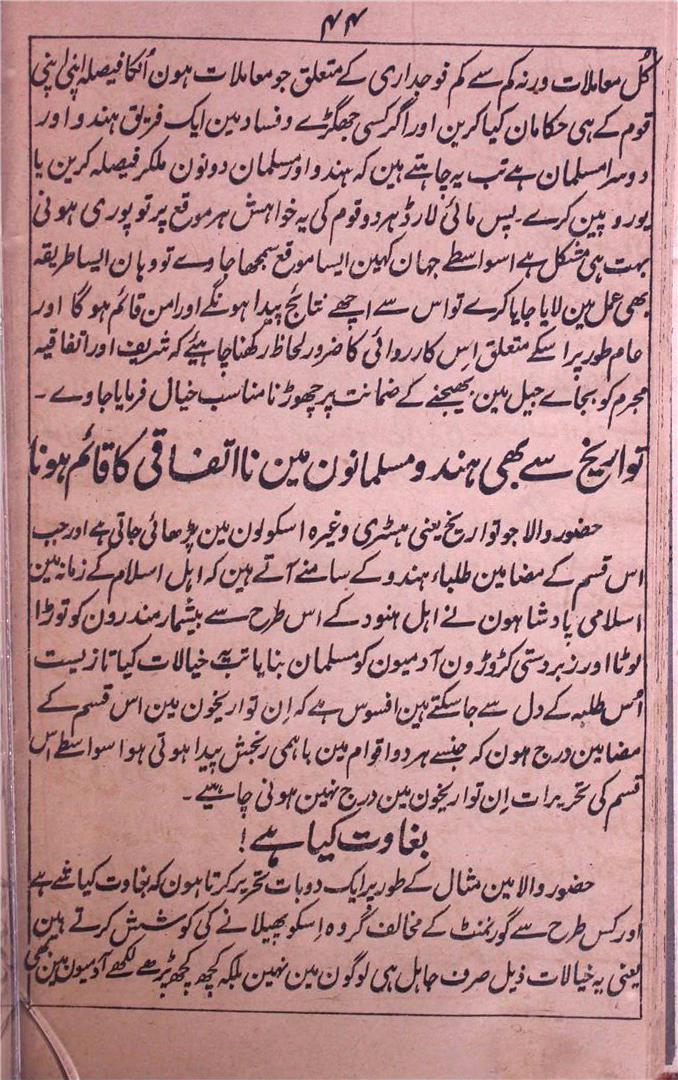 ۴۴
کُل معاملات ورنہ کم سے کم فوجداری کے متعلق جو معاملات ہون اُنکا فیصلہ اپنی اپنی
قوم کے ہی حکامان کیا کرین اور اگر کسی جھگڑے و فساد مین ایک فریق ہندو اور
دوسرا مسلمان ہے تب یہ چاہتے ہین کہ ہندو اور مسلمان دونون ملکر فیصلہ کرین یا
یوروپین کرے ۔ پس مائی لارڈ ہر دو قوم کی یہ خواہش ہر موقع پر تو پوری ہونی
بہت ہی مشکل ہے اسواسطے جہان کہین ایسا موقع سمجھا جاوے تو وہان ایسا طریقہ
بھی عمل مین لایا جایا کرے تو اس سے اچھے نتائج پیدا ہونگے اور امن قائم ہوگا اور
عام طور پر اسکے متعلق اِس کارروائی کا ضرور لحاظ رکھنا چاہیئے کہ شریف اور اتفاقیہ
مجرم کو بجاے جیل مین بھیجنے کے ضمانت پر چھوڑنا مناسب خیال فرمایا جاوے ۔
تواریخ سے بھی ہندو مسلمانون مین نا اتفاقی کا قائم ہونا
حضور والا جو تواریخ یعنی ہسٹری وغیرہ اسکولون مین پڑھائی جاتی ہے اور جب
اس قسم کے مضامین طلباء ہندو کے سامنے آتے ہین کہ اہل اسلام کے زمانہ مین
اسلامی پادشاہون نے اہل ہنود کے اس طرح سے بیشمار مندرون کو توڑا
لوٹا اور زبردستی کڑوڑون آدمیون کو مسلمان بنایا تب یہ خیالات کیا تا زیست
اُس طلبہ کے دل سے جا سکتے ہین افسوس ہے کہ اِن تواریخون مین اس قسم کے
مضامین درج ہون کہ جنسے ہر دو اقوام مین باہمی رنجش پیدا ہوتی ہو اسواسطے اس
قسم کی تحریرات اِن تواریخون مین درج نہین ہونی چاہیے ۔
بغاوت کیا ہے !
حضور والا مین مثال کے طور پر ایک دو بات تحریر کرتا ہون کہ بغاوت کیا شے ہے
اور کس طرح سے گورنمنٹ کے مخالف گروہ اِسکو پھیلانے کی کوشش کرتے ہین
یعنی یہ خیالات ذیل صرف جاہل ہی لوگون مین نہین بلکہ کچھ کچھ پڑھے لکھے آدمیون مین بھی